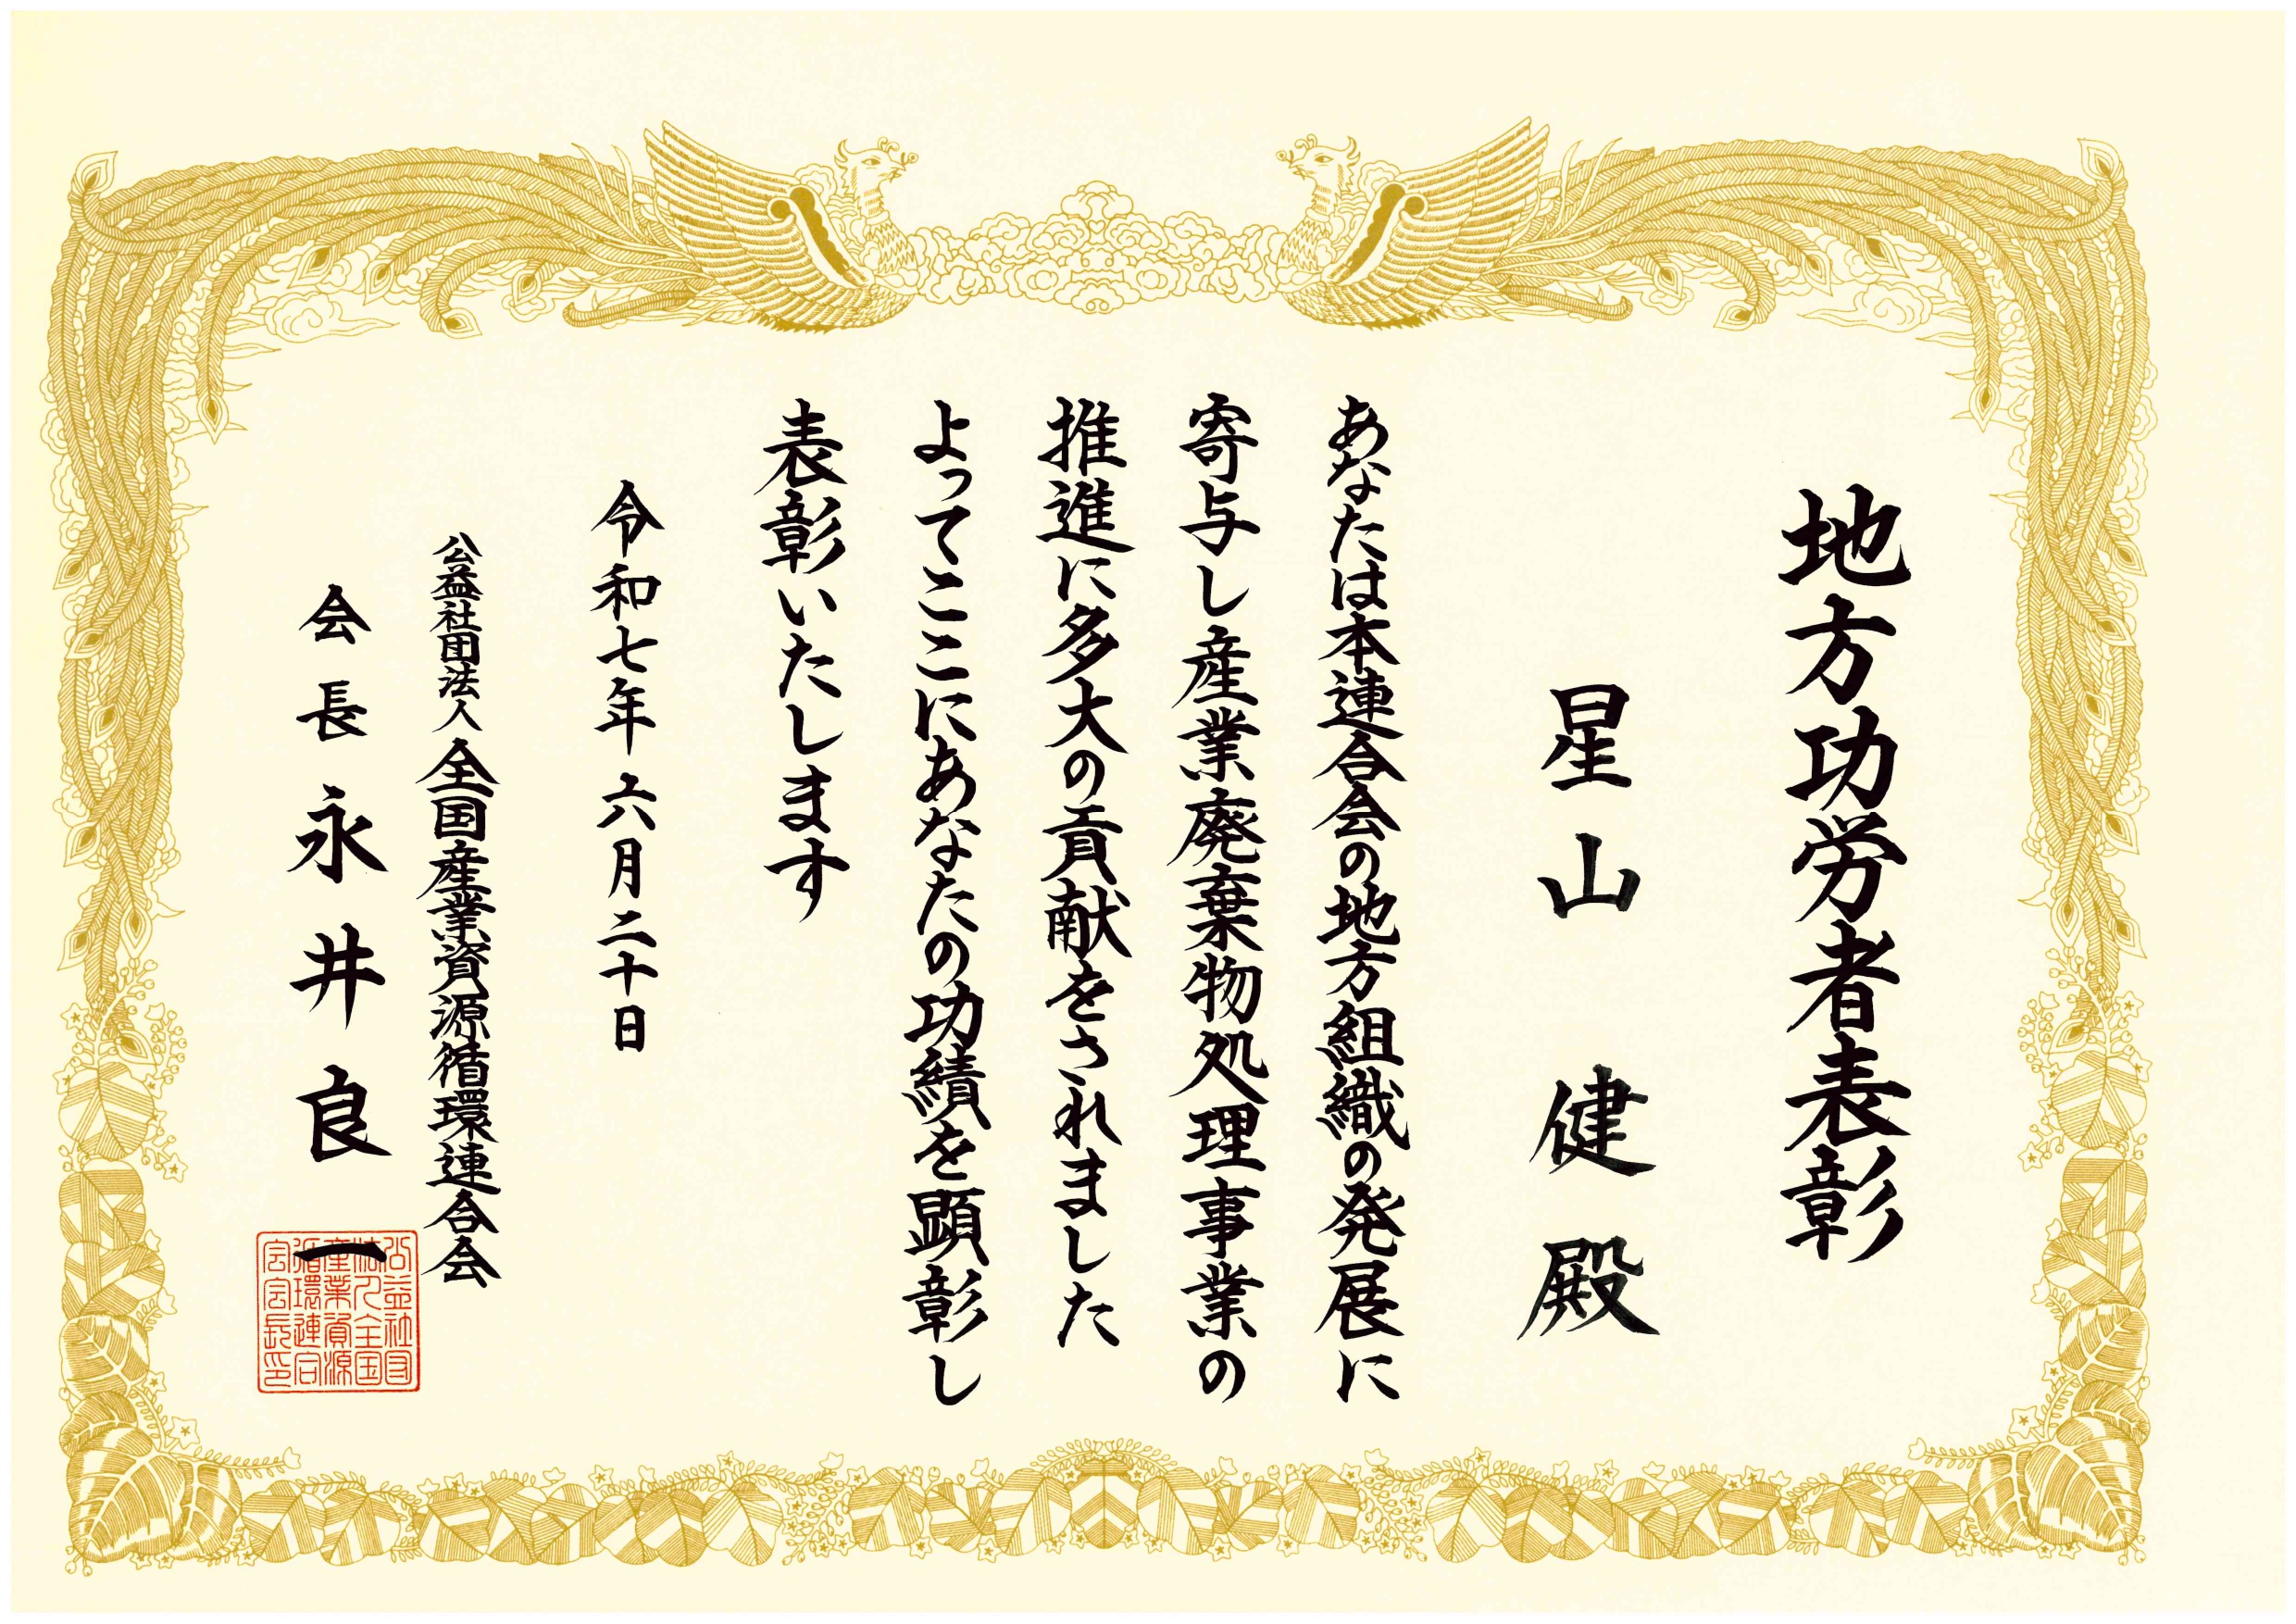 地方功労者表彰
星山 健 殿
あなたは本連合会の地方組織の発展に
寄与し産業廃棄物処理事業の
推進に多大の貢献をされました
よってここにあなたの功績を顕彰し
表彰いたします
令和七年六月二十日
公益社団法人全国産業資源循環連合会
会長 永井良一
公益社団
法人全国
産業資源
循環連合
会会長印